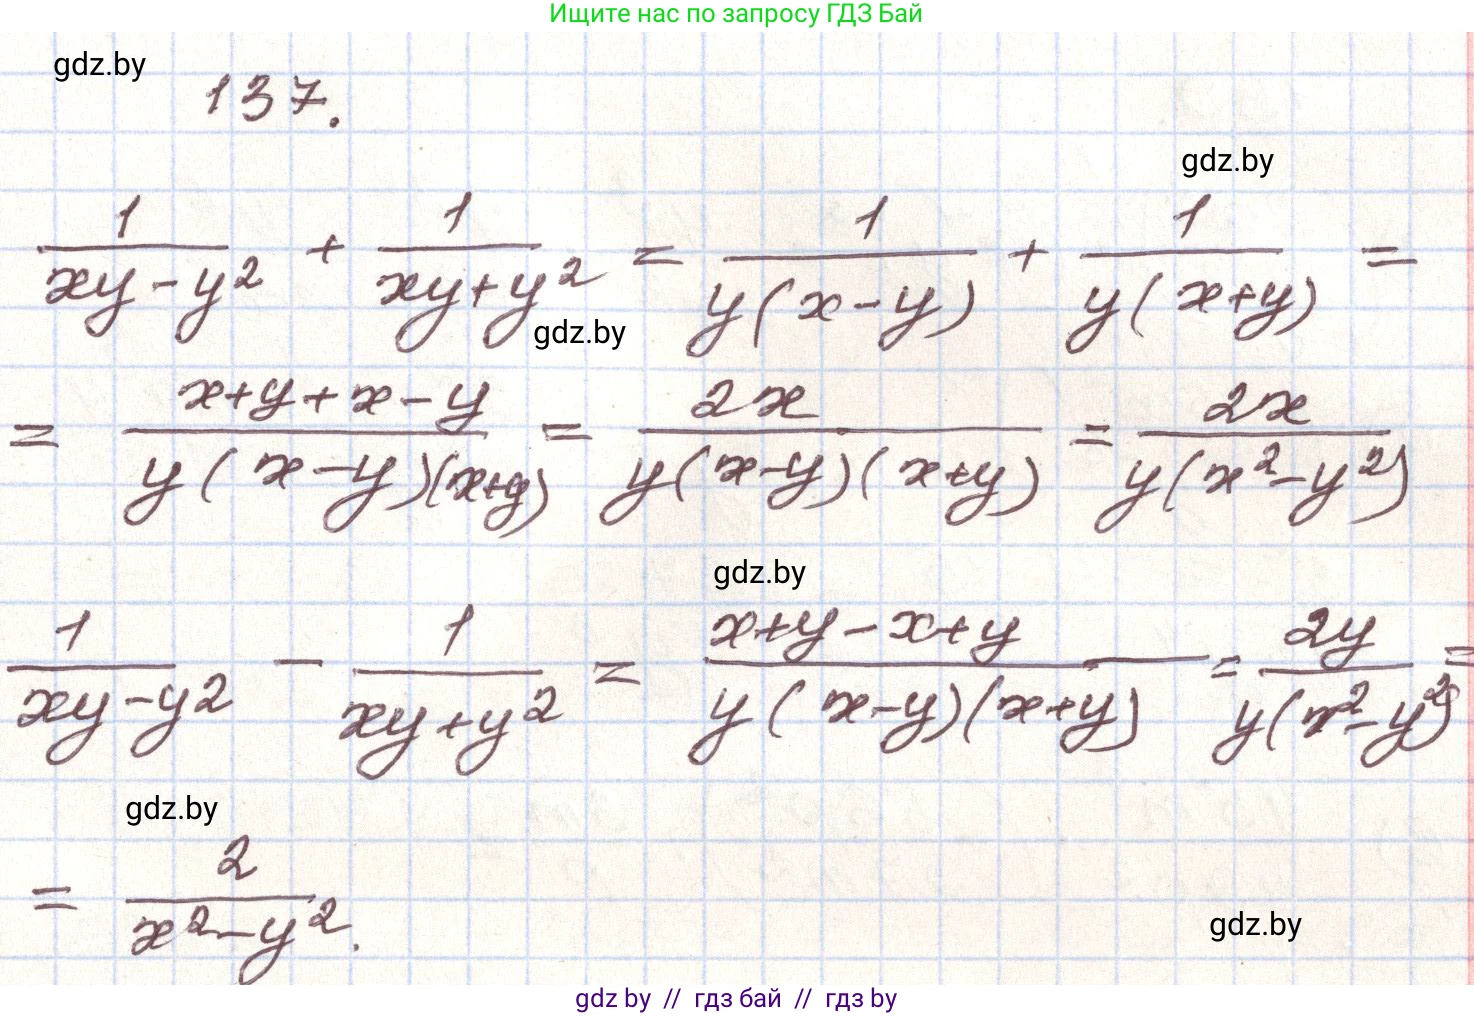 Ищите нас по запросу ГДЗ Бай
gdz.by
137.
gdz.by
1/(xy-y²) + 1/(xy+y²) = 1/(y(x-y)) + 1/(y(x+y)) =
gdz.by
= (x+y+x-y)/(y(x-y)(x+y)) = 2x/(y(x-y)(x+y)) = 2x/(y(x²-y²))
gdz.by
1/(xy-y²) - 1/(xy+y²) = (x+y-x+y)/(y(x-y)(x+y)) = 2y/(y(x²-y²)) =
gdz.by
= 2/(x²-y²).
gdz.by
gdz by // гдз бай // гдз by